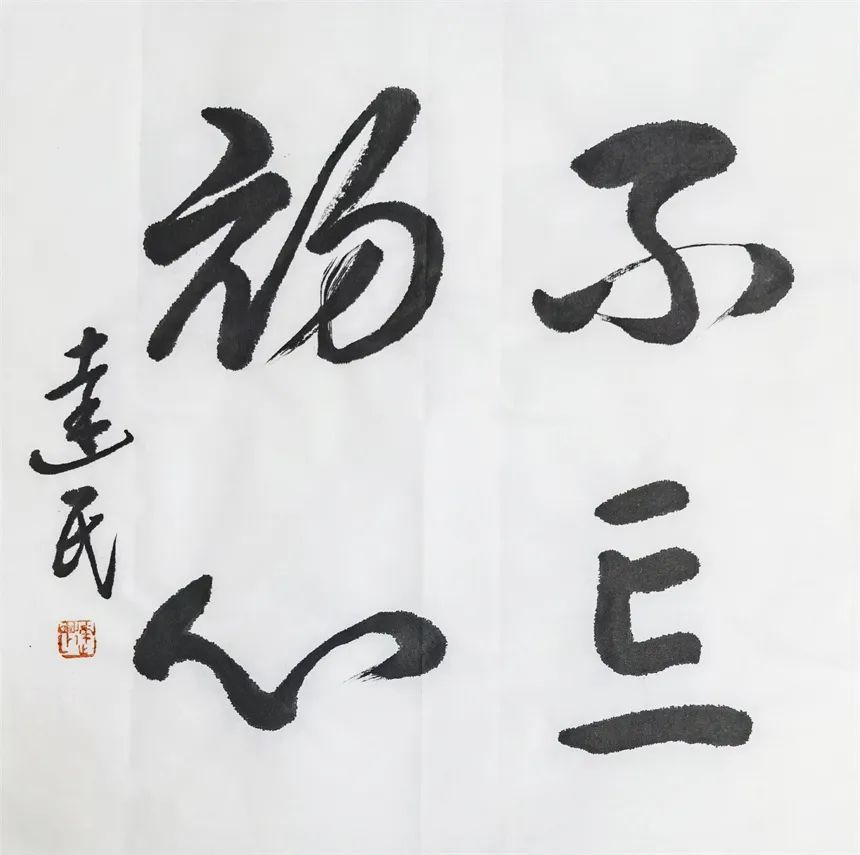 不忘
初心
達民